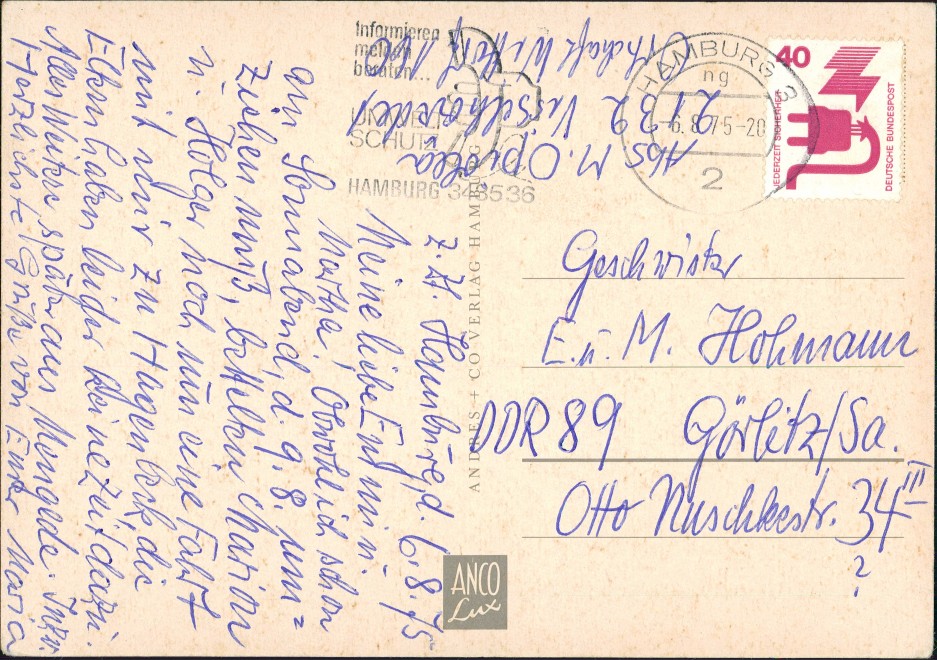 Informieren
melden
beraten...
UMWELT
SCHUTZ
HAMBURG 343536
HAMBURG 3
ng
-6.8.75-20
2
40
JEDERZEIT SICHERHEIT
DEUTSCHE BUNDESPOST
Abs M. Opiolka
2132 Visselhövede
Ortschaft Wittorf
z. Zt. Hamburg, d. 6.8.75
Meine liebe Emmi u.
Martha, Obwohl ich schon
am Sonnabend, d. 9.8. um=
ziehen muß, betteln Marion
u. Holger noch um eine Fahrt
mit mir zu Hagenbeck, die
Eltern haben leider keine Zeit dazu.
Alles Weitere später aus Mengede.
Herzlichste Grüße von Eurer Maria
ANDRES + CO VERLAG HAMBURG
ANCO
Lux
Geschwister
E. u. M. Hohmann
DDR 89 Görlitz/Sa.
Otto Nuschkestr. 34 III
?